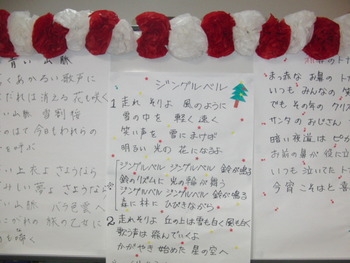 青い山脈
くあかるい歌声に
だれは消える 花も咲く
い山脈 雪割桜
のはて今もわれらの
を呼ぶ
い上衣よ さようなら
みしい夢よ さようなら
い山脈 バラ色雲へ
こがれの旅の乙女に
も啼く
ジングルベル
1 走れ そりよ 風のように
雪の中を 軽く 速く
笑い声を 雪にまけば
明るい光の 花になるよ
ジングルベル ジングルベル 鈴が鳴る
鈴のリズムに 光の輪が舞う
ジングルベル ジングルベル 鈴が鳴る
森に林に ひびきながら
2 走れそりよ 丘の上は 雪も白く 風も白く
歌声は 飛んでいくよ
かがやき始めた 星の空へ
赤鼻のトナ
まっ赤な お鼻の トナ
いつも みんなの 笑
でも その年の クリス
サンタの おじさん
暗い夜道は ピカ
お前の鼻が 役に立
いつも 泣いてた トナ
今宵 こそはと 喜